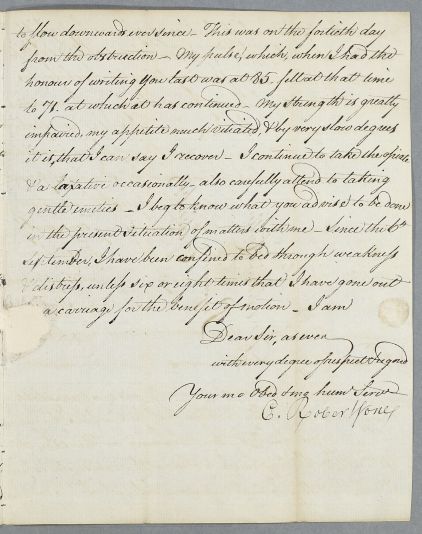 to flow downwards ever since – This was on the fortieth day
from the obstruction – My pulse, which, when I had the
honour of writing you last was at 85. fell at that time
to 71. at which at has continued – My strength is greatly
impaired, my appetite much vitiated, & by very slow degrees
it is, that I can say I recover – I continue to take the opiate
& a laxative occasionally – also carefully attend to taking
gentle emetics – I beg to know what you advise to be done
in the present situation of matters with me – Since the 6th
September, I have been confined to bed through weakness
& distress, unless six or eight times that I have gone out
a carriage for the benefit of motion – I am
Dear Sir, as ever
with every degree of respect & regard
Your mo Obed &ng hume Servt
C. Robertson